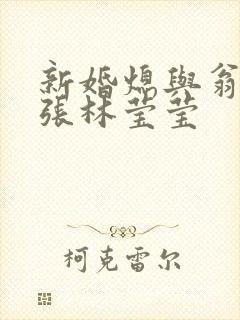 新婚媳與翁
張林莹莹
柯克雷尔